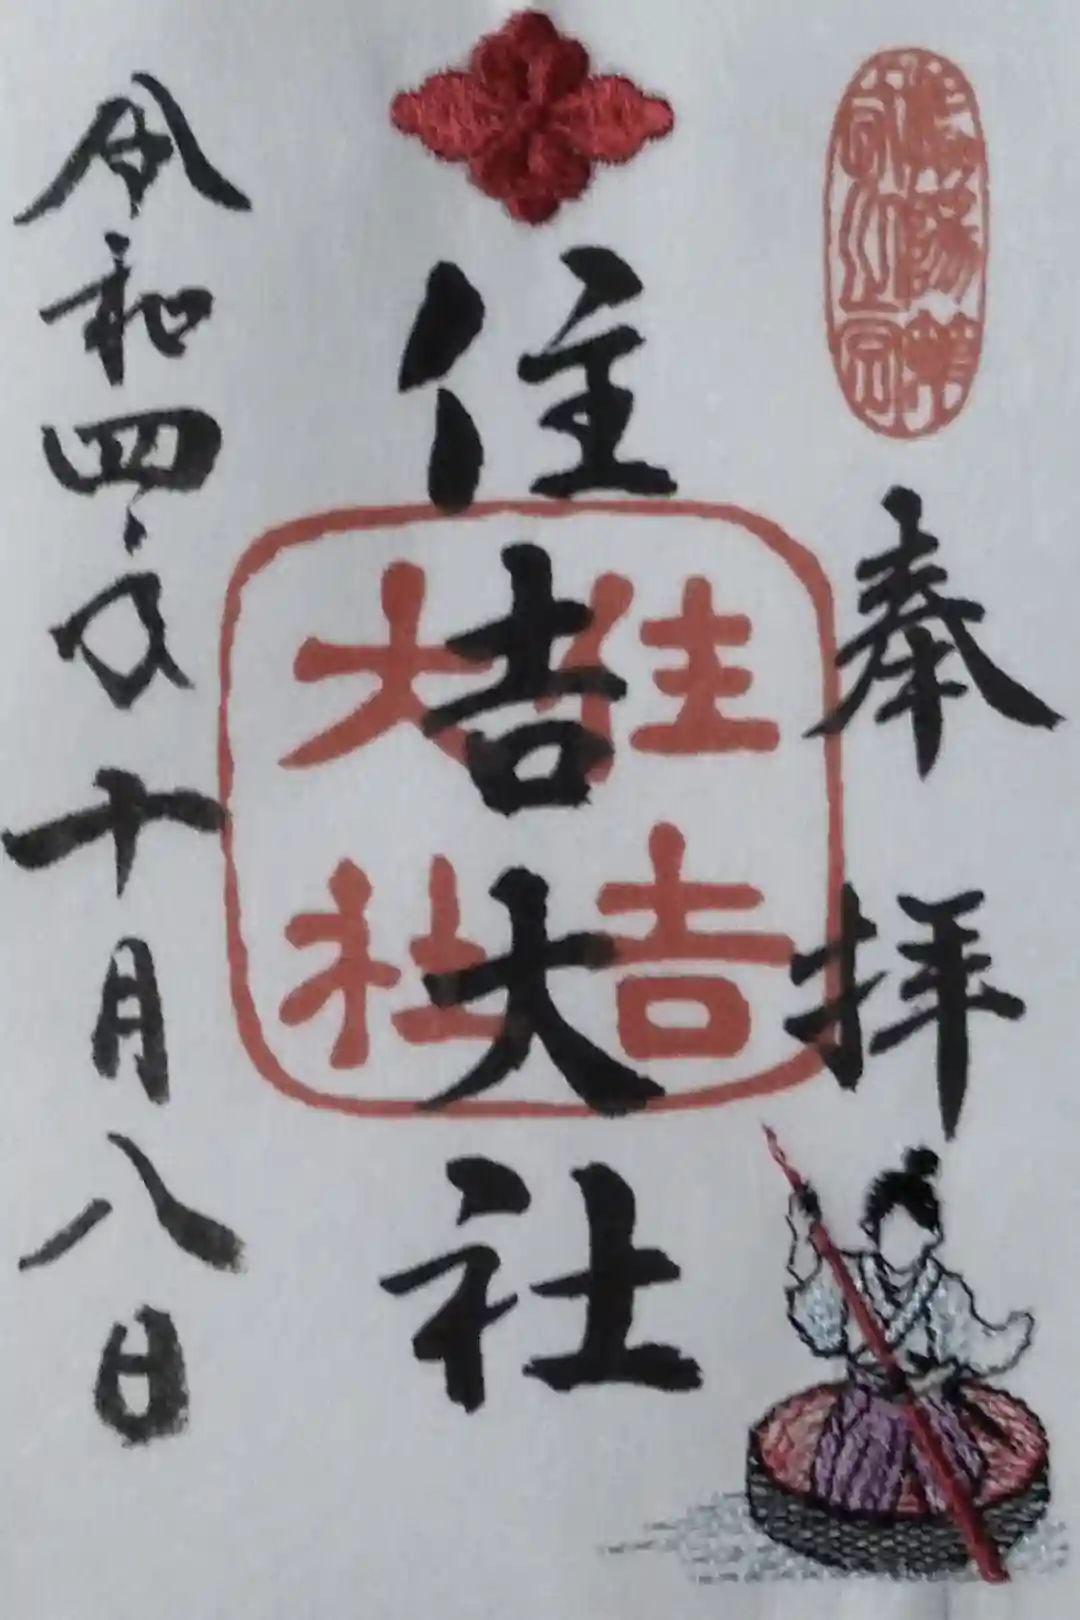 奉拝
住吉大社
住吉大社
令和四年十月八日